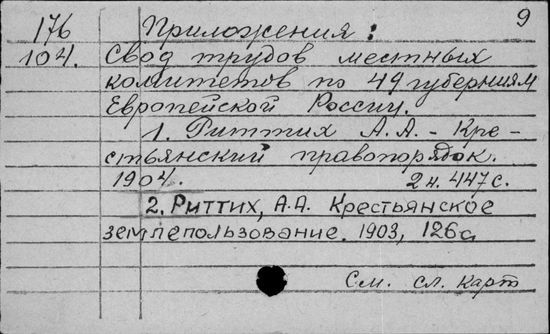 9
176 Приложения:
104. Свод трудов местных
комитетов по 49 губерниям
Европейской России.
1. Риттих А.А. - Кре-
стьянский правопорядок.
1904. 2 н. 447 с.
2. Риттих, А.А. Крестьянское
землепользование. 1903, 126 с.
См. сл. карт